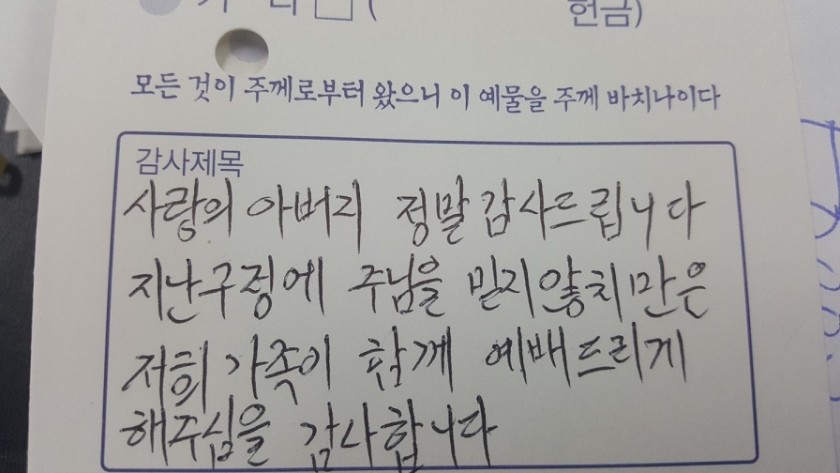 헌금)
모든 것이 주께로부터 왔으니 이 예물을 주께 바치나이다
감사제목
사랑의 아버지 정말 감사드립니다
지난구정에 주님을 믿지않치만은
저희 가족이 함께 예배드리게
해주심을 감사합니다